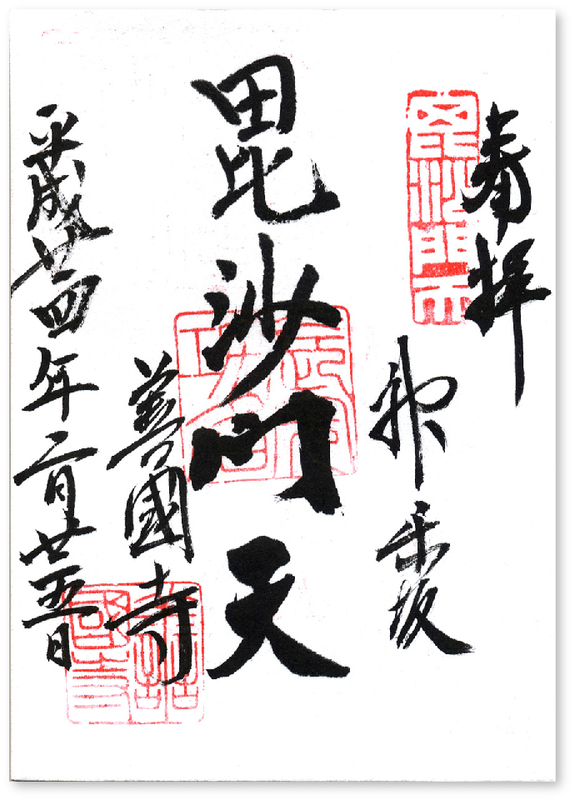 奉拝
神楽坂
毘沙門天
善國寺
平成廿四年二月廿五日